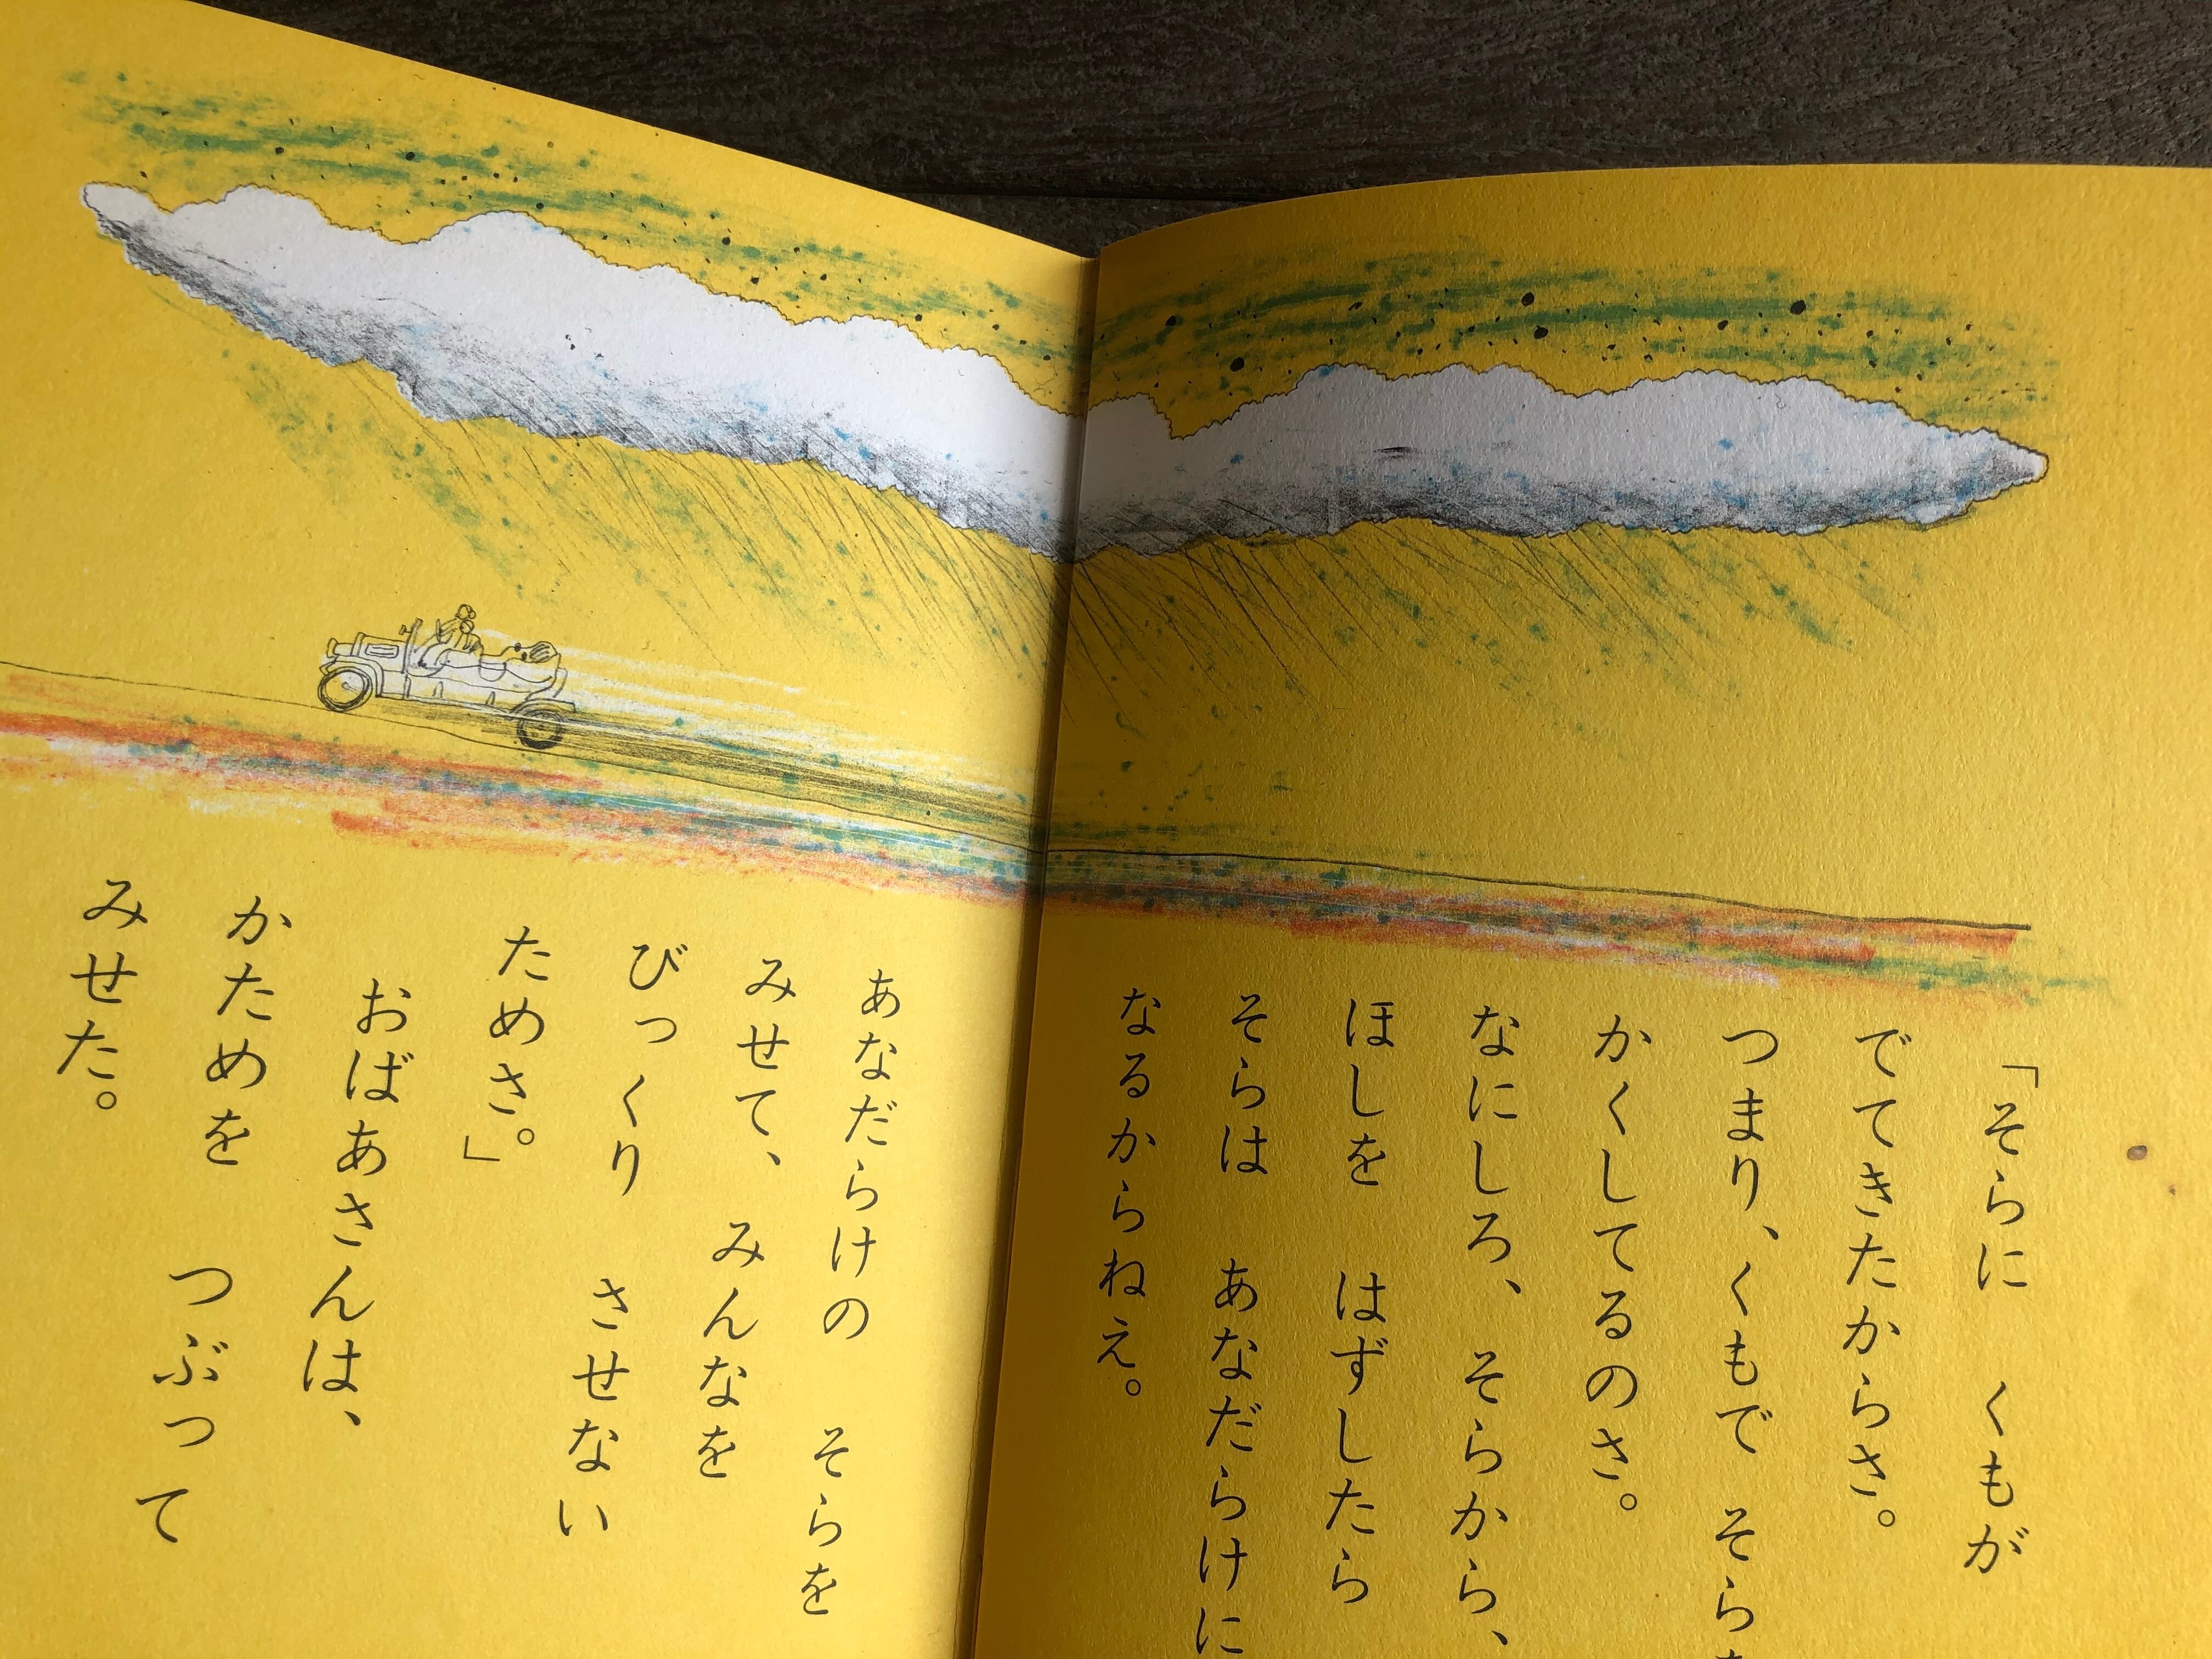 「そらに　くもが
でてきたからさ。
つまり、くもで　そら
かくしてるのさ。
なにしろ、そらから、
ほしを　はずしたら
そらは　あなだらけに
なるからねえ。
あなだらけの　そらを
みせて、みんなを
びっくり　させない
ためさ。」
おばあさんは、
かためを　つぶって
みせた。